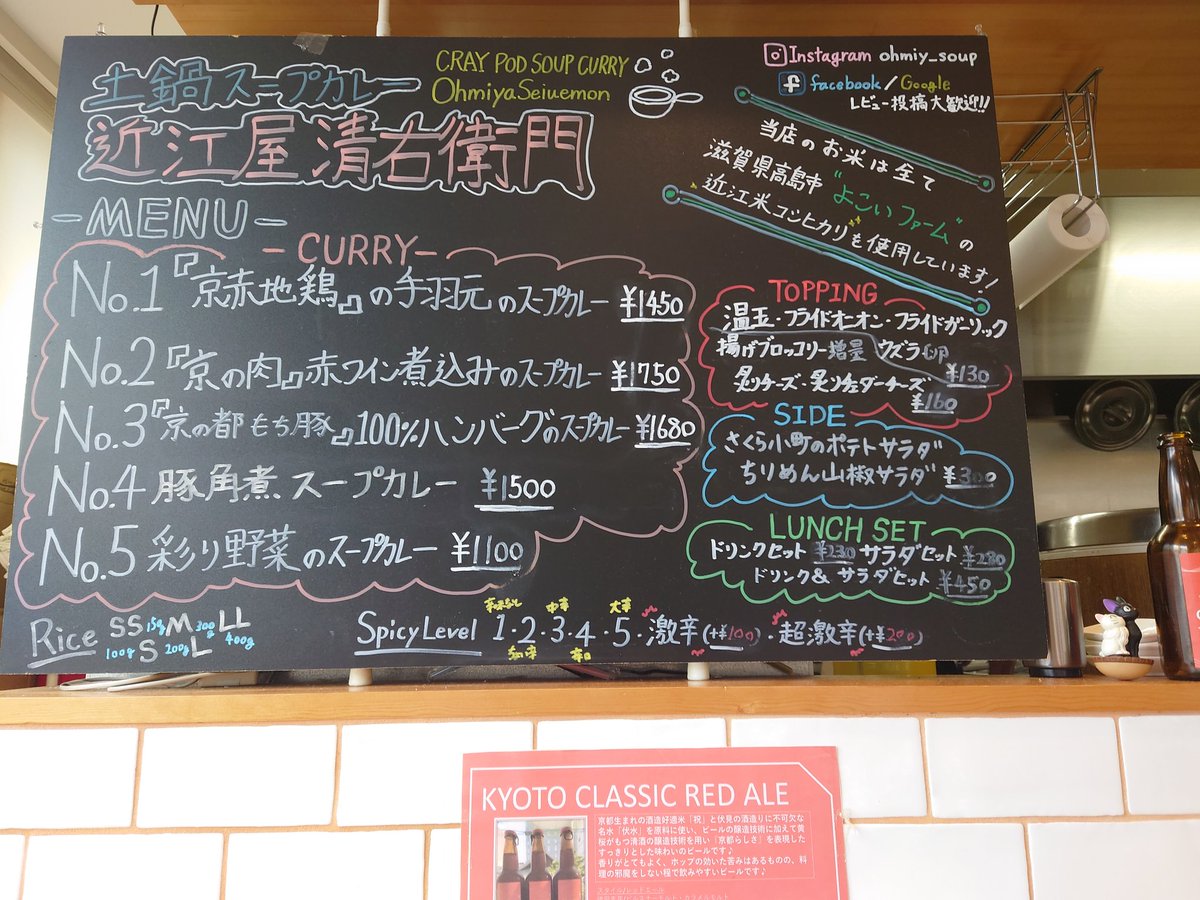 土鍋スープカレー
CRAY POD SOUP CURRY
OhmiyaSeiuemon
近江屋清右衛門
Instagram ohmiy_soup
facebook/Google
レビュー投稿大歓迎!!
当店のお米は全て
滋賀県高島市"よこいファーム"の
近江米コシヒカリを使用しています!
-MENU-
-CURRY-
No.1『京赤地鶏』の手羽元のスープカレー ¥1450
No.2『京の肉』赤ワイン煮込みのスープカレー ¥1750
No.3『京の都もち豚』100%ハンバーグのスープカレー ¥1680
No.4 豚角煮スープカレー ¥1500
No.5 彩り野菜のスープカレー ¥1100
TOPPING
温玉・フライドオニオン・フライドガーリック
揚げブロッコリー増量 ウズラ卵
¥130
炙りチーズ・炙りチェダーチーズ
¥160
SIDE
さくら小町のポテトサラダ
ちりめん山椒サラダ ¥300
LUNCH SET
ドリンクセット ¥230 サラダセット ¥280
ドリンク& サラダセット ¥450
Rice SS 150g M 300g LL
100g S 200g L 400g
中辛 大辛
Spicy Level 1・2・3・4・5・激辛(+¥100)・超激辛(+¥200)
KYOTO CLASSIC RED ALE
京都生まれの酒造好適米「祝」と伏見の酒造りに不可欠な
名水「伏水」を原料に使い、ビールの醸造技術に加えて黄
桜がもつ清酒の醸造技術を用い「京都らしさ」を表現した
すっきりとした味わいのビールです♪
香りがとてもよく、ホップの効いた苦みはあるものの、料
理の邪魔をしない程で飲みやすいビールです♪
スタイル/レッドエール